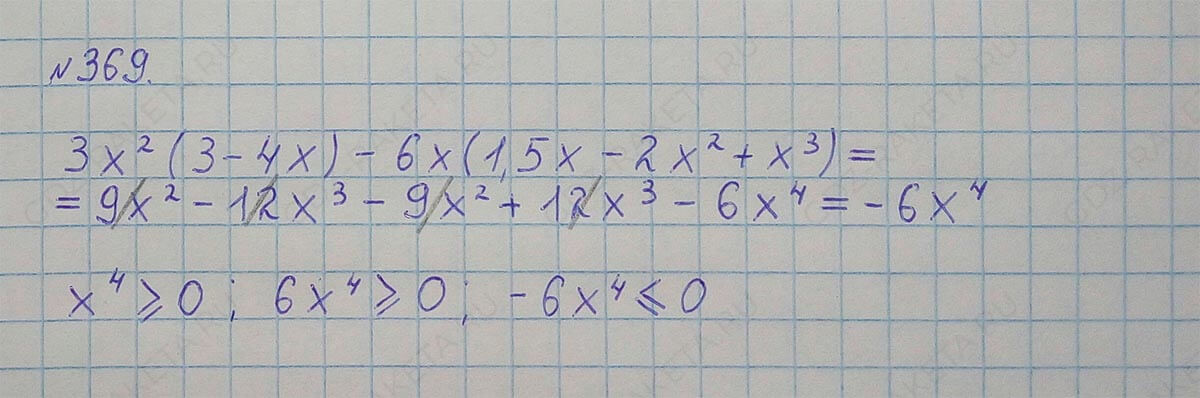 №369.
3x²(3-4x)-6x(1,5x-2x²+x³)=
=9x²-12x³-9x²+12x³-6x⁴=-6x⁴
x⁴⩾0; 6x⁴⩾0; -6x⁴⩽0